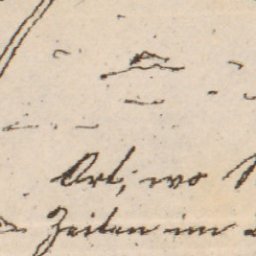 Ort, wo
Zeiten im